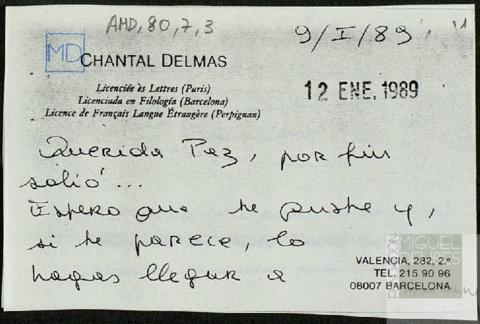 AMD, 80, 7, 3
9/I/89
MD
CHANTAL DELMAS
Licenciée ès Lettres (Paris)
Licenciada en Filología (Barcelona)
Licence de Français Langue Étrangère (Perpignan)
12 ENE. 1989
Querida Paz, por fin
salió...
Espero que te guste y,
si te parece, lo
hagas llegar a
VALENCIA, 282, 2.°
TEL. 215 90 96
08007 BARCELONA
FUNDACIÓN
MIGUEL
DELIBES